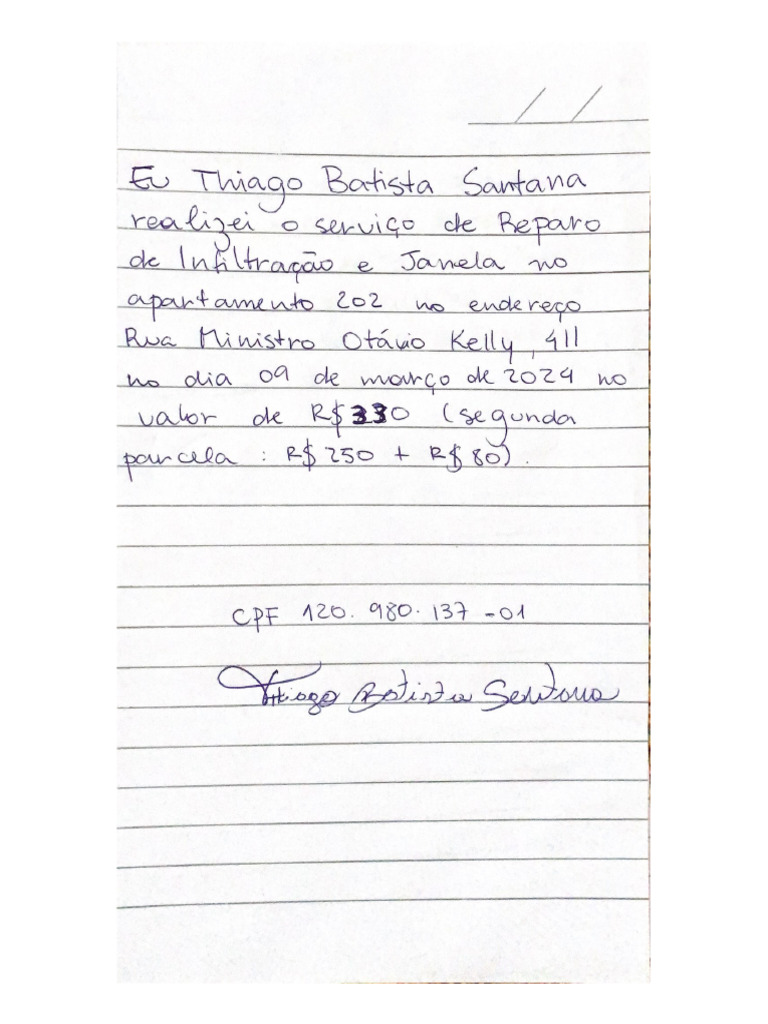 / /
Eu Thiago Batista Santana
realizei o serviço de Reparo
de Infiltração e Janela no
apartamento 202 no endereço
Rua Ministro Otávio Kelly, 411
no dia 09 de março de 2024 no
valor de R$330 (segunda
parcela : R$250 + R$80).
CPF 120.980.137-01
Thiago Batista Santana